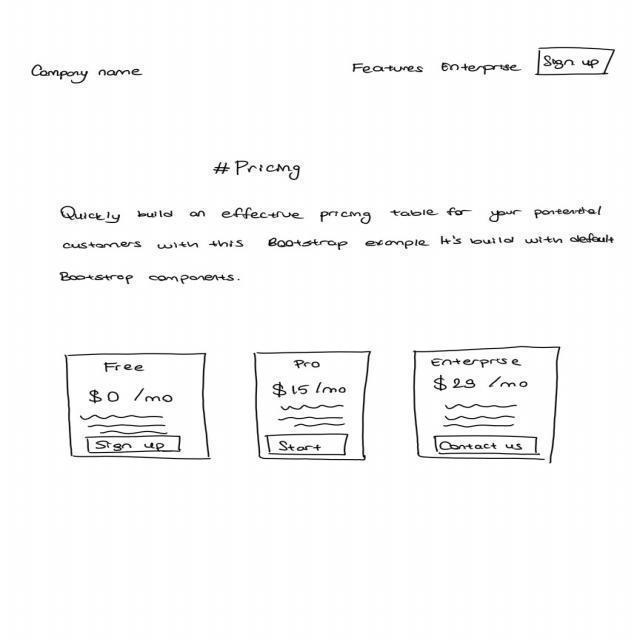 Company name
Features Enterprise Sign up
#Pricing
Quickly build an effective pricing table for your potential
customers with this Bootstrap example It's build with default
Bootstrap components.
Free
$0 /mo
Sign up
Pro
$15/mo
Start
Enterprise
$29 /mo
Contact us